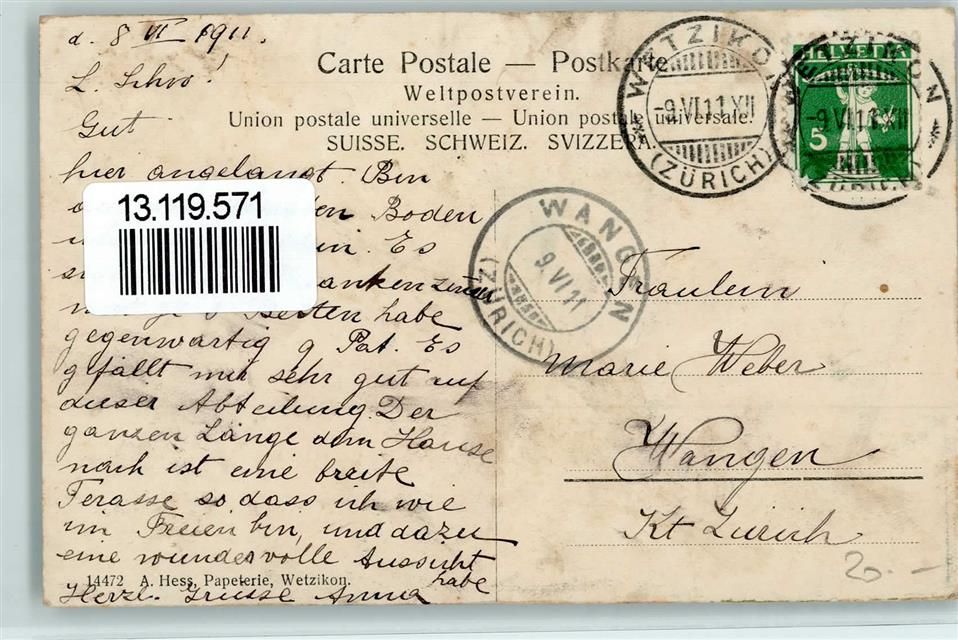 d. 8 VI 1911.
L. Schw!
Gut
hier angelangt. Bin
den Boden
Es
13.119.571
Betten habe
gegenwärtig 9 Pat. Es
gefällt mir sehr gut auf
dieser Abteilung. Der
ganzen Länge dem Hause
nach ist eine breite
Terasse so dass ich wie
im Freien bin, und dazu
eine wundervolle Aussicht
habe
Herzl. Grüsse Anna
14472 A. Hess, Papeterie, Wetzikon.
Carte Postale — Postkarte
Weltpostverein.
Union postale universelle — Union postale universale.
SUISSE. SCHWEIZ. SVIZZERA.
WETZIKON
-9.VI.11.XII
(ZÜRICH)
HELVETIA
5
WETZIKON
-9.VI.11.XII
WANGEN
9.VI.11
(ZÜRICH)
Fräulein
Marie Weber
Wangen
Kt Zürich
20.-